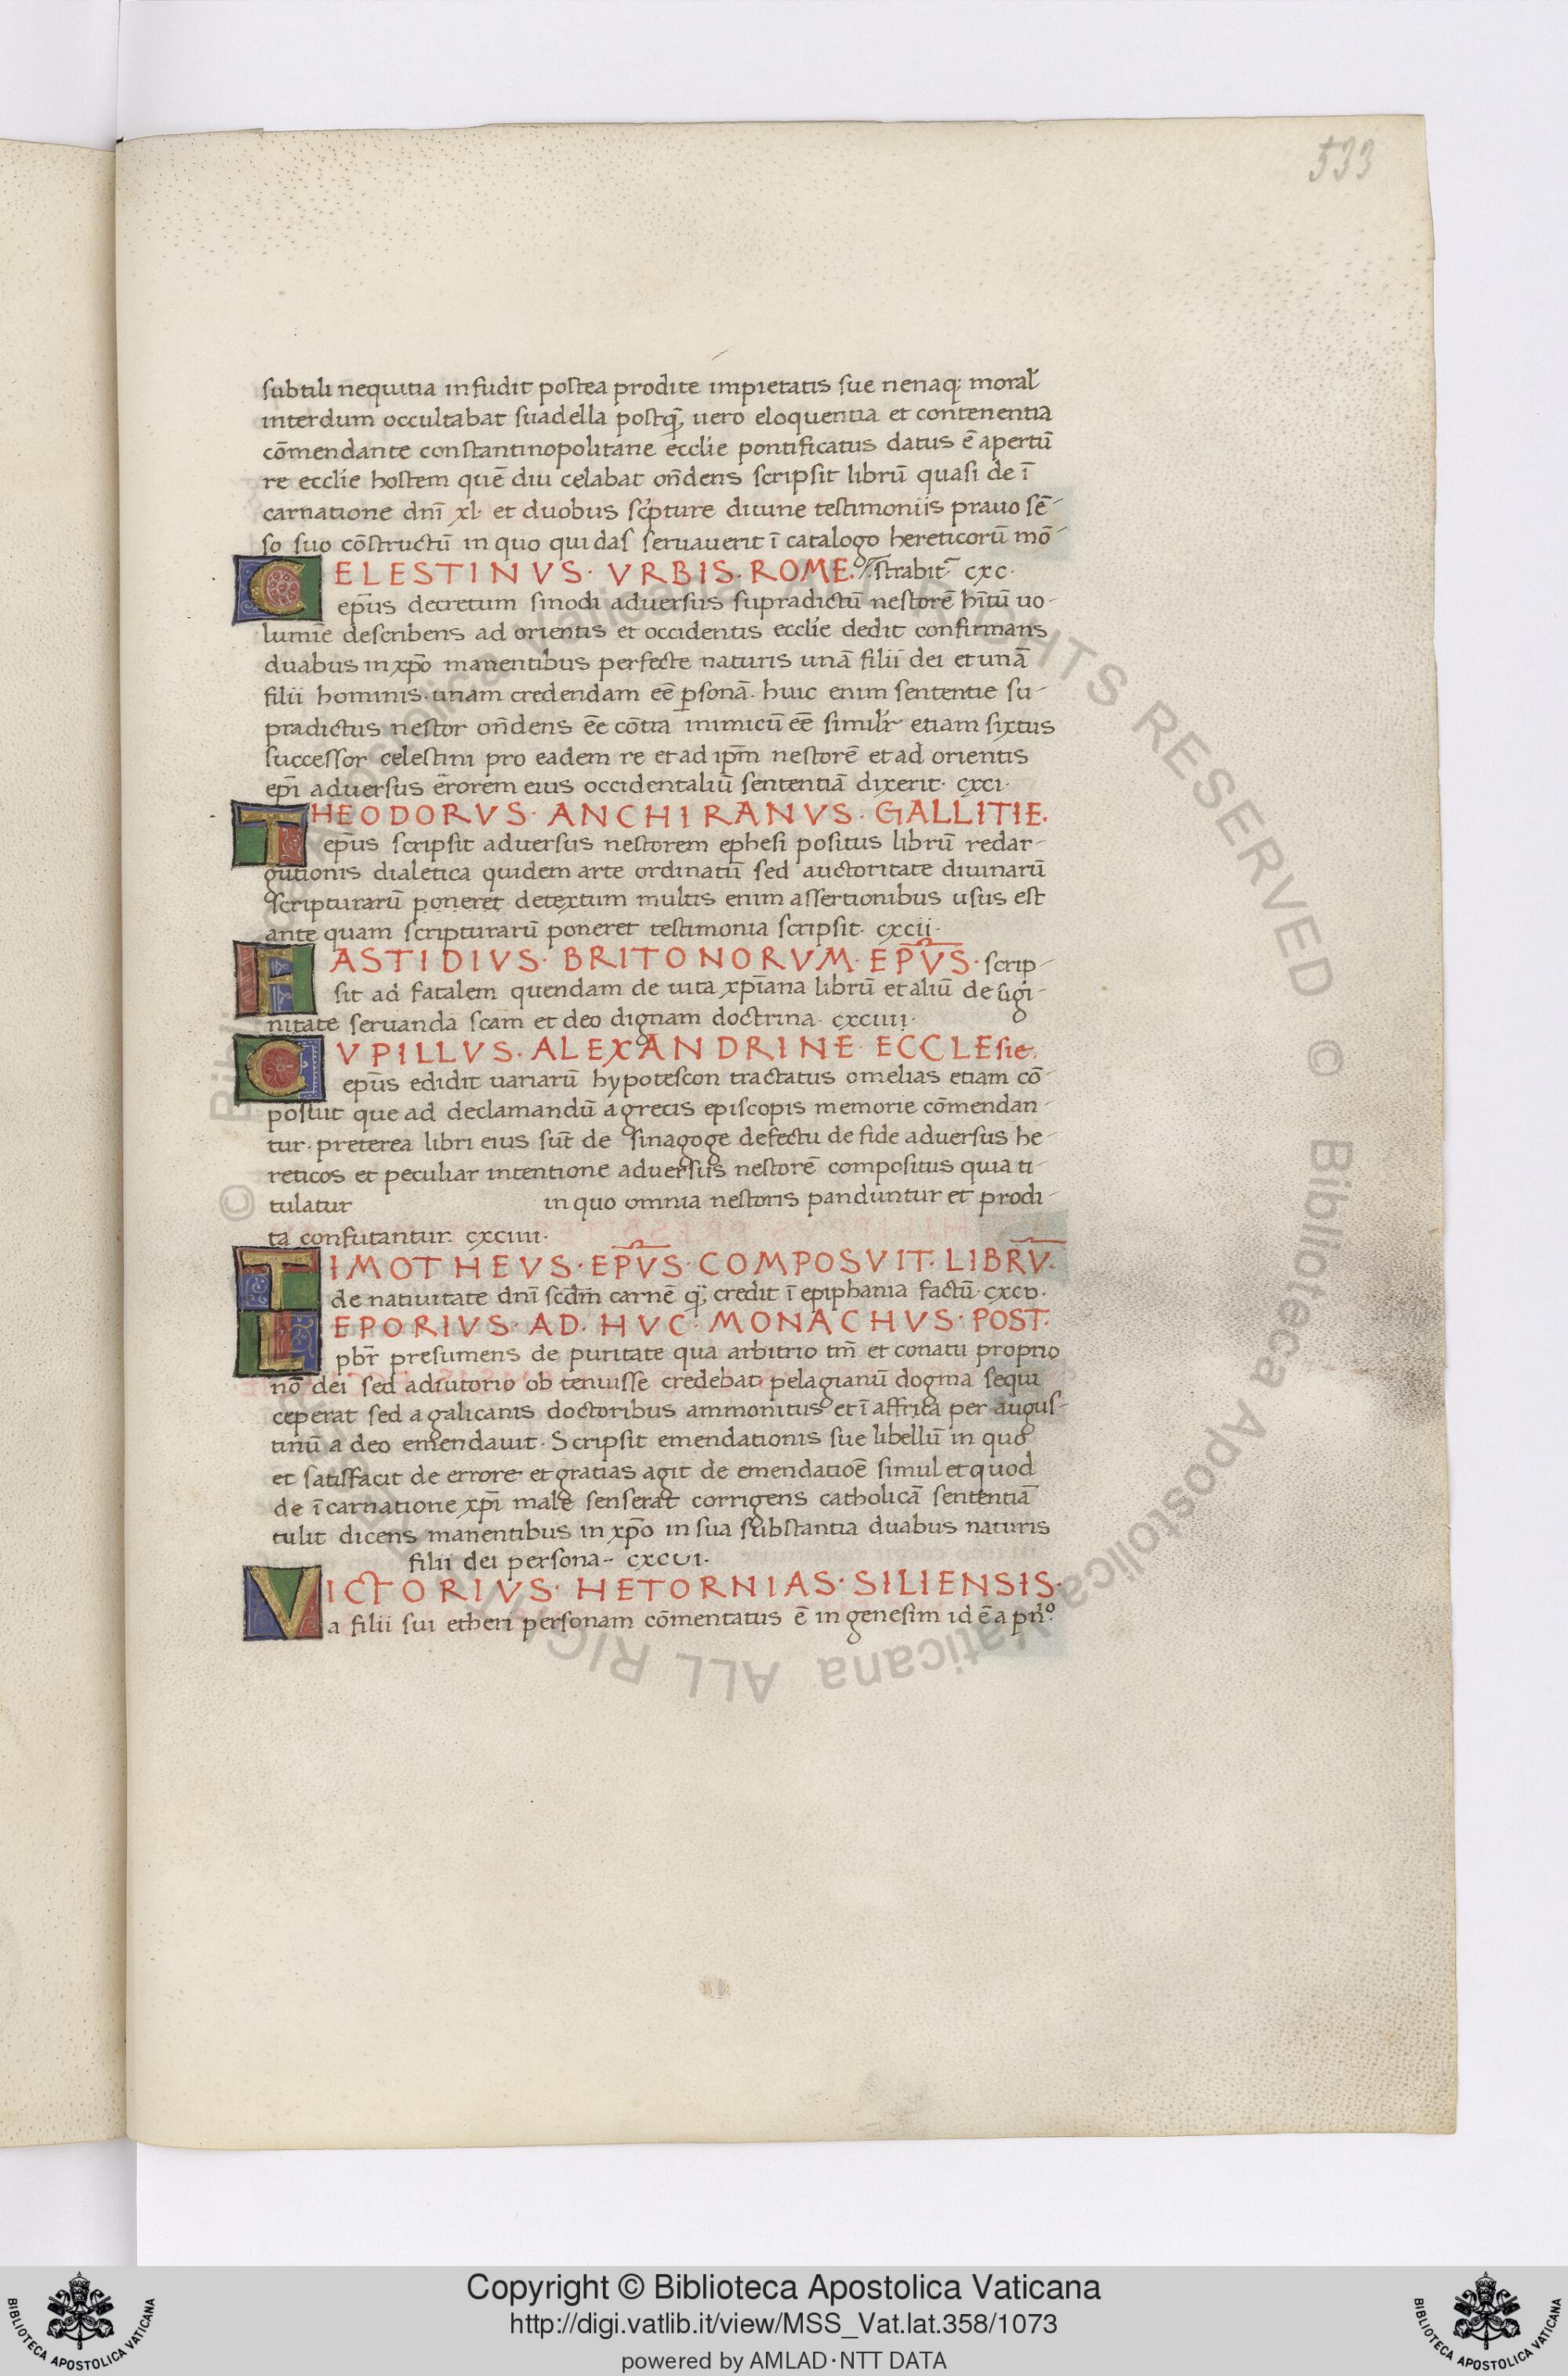 533
subtili nequitia infudit postea prodite impietatis sue nenaq; moral̃
interdum occultabat suadella postq̃, uero eloquentia et contenentia
cōmendante constantinopolitane ecclíe pontificatus datus ē apertū
re ecclíe hostem quē diu celabat on̄dens scripsit librū quasi de ī
carnatione dnī xl· et duobus sc̓pture diuine testimoniis prauo sē-
so suo cōstructū in quo qui das seruauerit ī catalogo hereticorū mō-
CELESTINVS· VRBIS· ROME· strabit᷑ cxc·
ep̄us decretum sinodi aduersus supradictū nestorē hītū uo-
lumīe describens ad orientis et occidentis ecclíe dedit confirmans
duabus in xp̄o manentibus perfecte naturis unā filii dei et unā
filii hominis· unam credendam eē p̱sonā· huic enim sententie su-
pradictus nestor on̄dens eē cōtra inimicū eē simulr̓ etiam sixtus
successor celestini pro eadem re et ad ip̄m nestorē et ad orientis
ep̄i aduersus errorem eius occidentaliū sententiā dixerit· cxci·
THEODORVS· ANCHIRANVS· GALLITIE·
ep̄us scripsit aduersus nestorem ephesi positus librū redar-
gutionis dialetica quidem arte ordinatū sed auctoritate diuinarū
scripturarū poneret detextum multis enim assertionibus usus est
ante quam scripturarū poneret testimonia scripsit· cxcii·
FASTIDIVS· BRITONORVM· EP̄VS· scrip-
sit ad fatalem quendam de uita xp̄iana librū et aliū de ūgi-
nitate seruanda scam et deo dignam doctrina· cxciiii·
CVPILLVS· ALEXANDRINE ECCLEsie·
ep̄us edidit uariarū hypotescon tractatus omelias etiam cō-
posuit que ad declamandū a grecis episcopis memorie cōmendan-
tur· preterea libri eius sūt de sinagoge defectu de fide aduersus he-
reticos et peculiar intentione aduersus nestorē compositus quia ti-
tulatur in quo omnia nestoris panduntur et prodi-
ta confutantur· cxciiii·
TIMOTHEVS· EP̄VS· COMPOSVIT· LIBRV̄·
de natiuitate dnī scd̄m carnē q̃, credit ī epiphania factū· cxcv·
LEPORIVS· AD· HVC· MONACHVS· POST·
pb̄r presumens de puritate qua arbitrio tm̄ et conatu proprio
nō dei sed adiutorio ob tenuisse credebat pelagianū dogma sequi
ceperat sed a galicanis doctoribus ammonitus et ī affrica per augus-
tinū a deo emendauit· Scripsit emendationis sue libellū in quo
et satisfacit de errore et gratias agit de emendatioē simul et quod
de īcarnatione xp̄i male senserat corrigens catholicā sententiā
tulit dicens manentibus in xp̄o in sua substantia duabus naturis
filii dei persona- cxcvi·
VICTORIVS· HETORNIAS· SILIENSIS·
a filii sui etheri personam cōmentatus ē in genesim id ē a pn̄i°·
© Biblioteca Apostolica Vaticana ALL RIGHTS RESERVED © Biblioteca Apostolica Vaticana ALL RIGHTS RESERVED
Copyright © Biblioteca Apostolica Vaticana
http://digi.vatlib.it/view/MSS_Vat.lat.358/1073
powered by AMLAD·NTT DATA
BIBLIOTECA APOSTOLICA VATICANA
BIBLIOTECA APOSTOLICA VATICANA